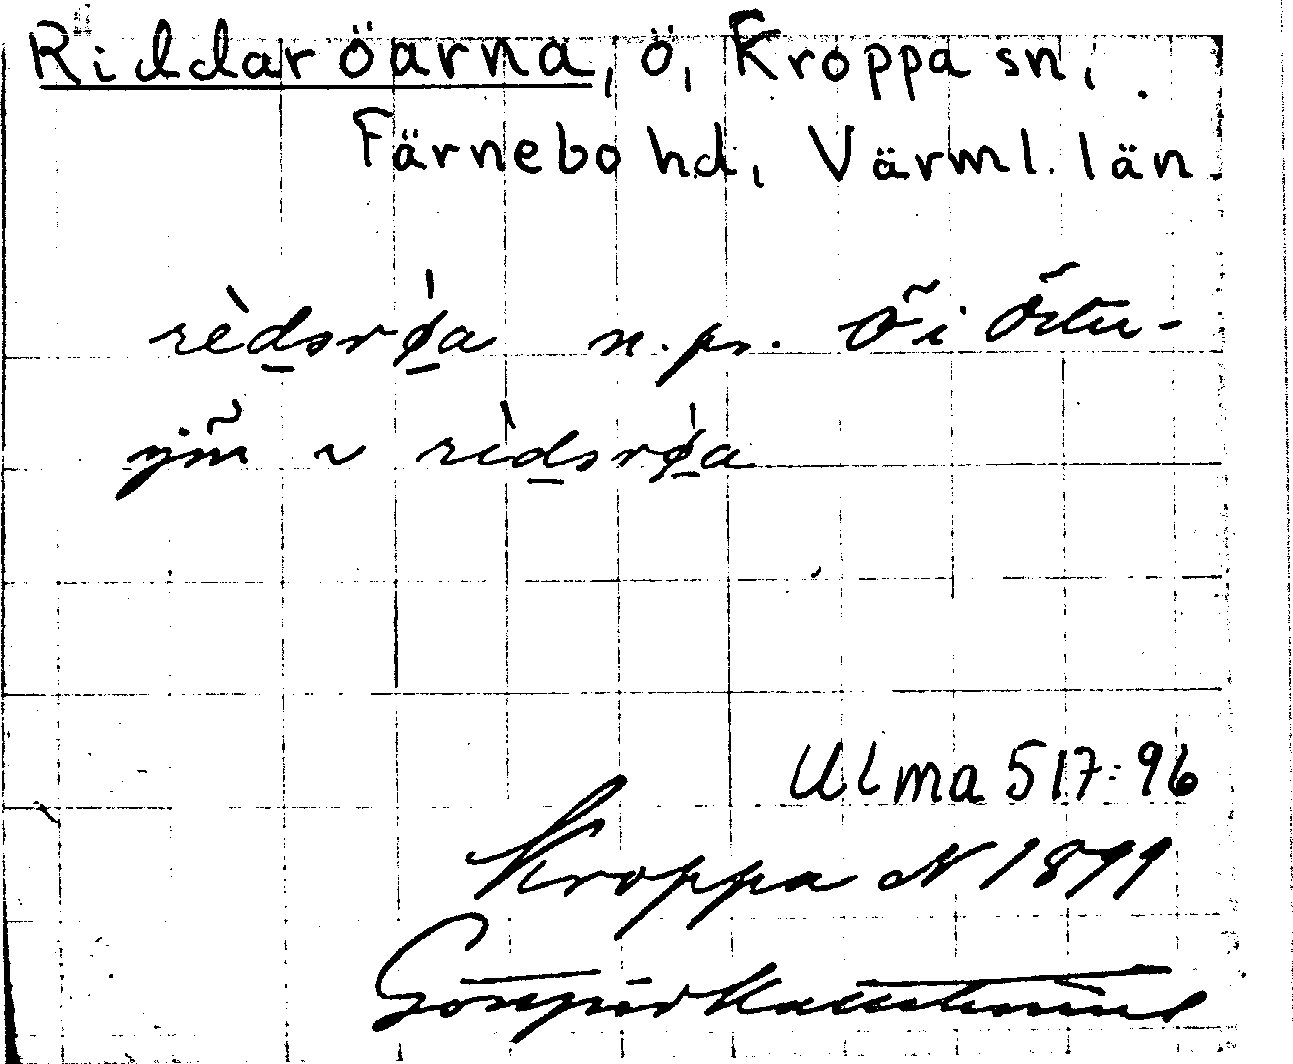 Riddaröarna, ö, Kroppa sn,
Färnebo hd, Värml. län.
rèdsrø̀a n. pr. Ö i Öster-
sjön ~ rìdsrø̀a
Ulma 517:96
Kroppa N 1899